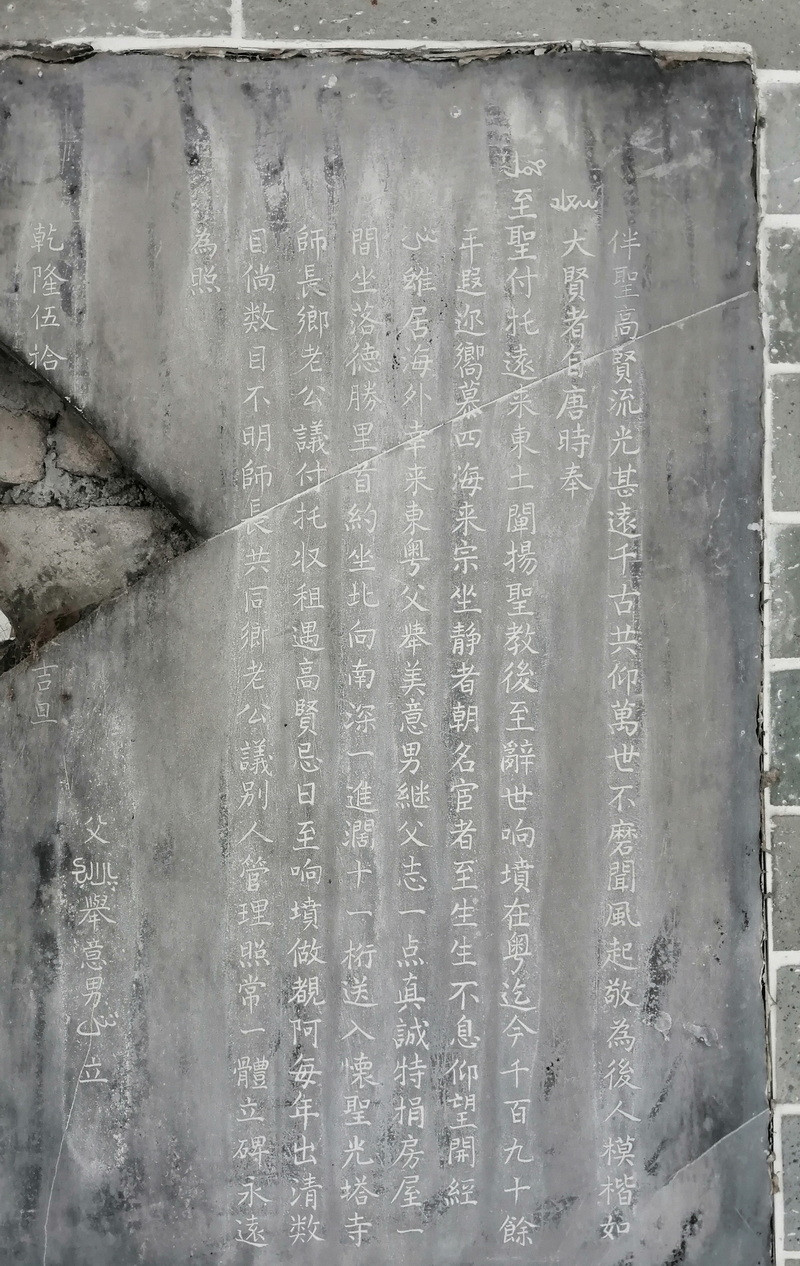 伴聖高賢流光甚遠千古共仰萬世不磨聞風起敬為後人模楷如
大賢者自唐時奉
至聖付托遠来東土闡揚聖教後至辭世响墳在粤迄今千百九十餘
年遐迩嚮慕四海来宗坐静者朝名宦者至生生不息仰望開經
維居海外幸来東粤父舉美意男継父志一点真誠特捐房屋一
間坐落德勝里首約坐北向南深一進濶十一桁送入懷聖光塔寺
師長鄉老公議付托收租遇高賢忌日至响墳做覩阿每年出清数
目倘数目不明師長共同鄉老公議别人管理照常一體立碑永遠
為照
乾隆伍拾
吉旦
父
舉意男
立